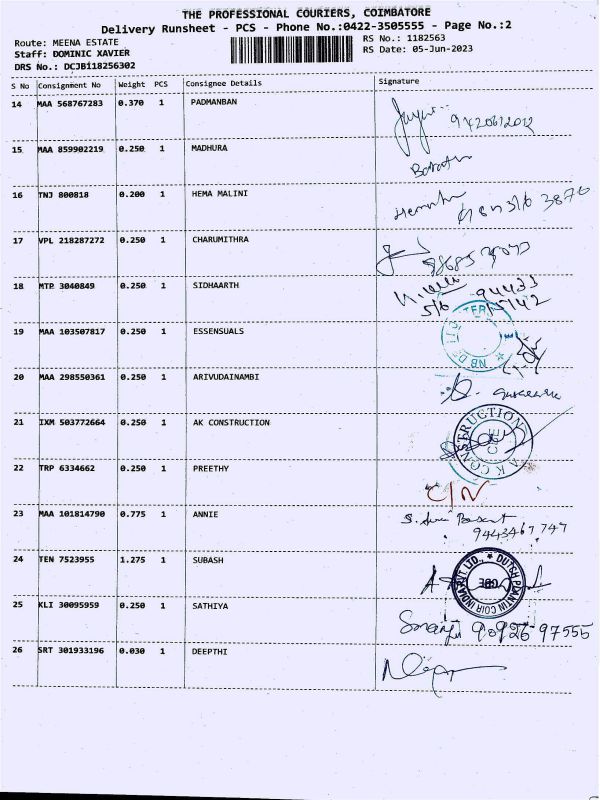 THE PROFESSIONAL COURIERS, COIMBATORE
Delivery Runsheet - PCS - Phone No.:0422-3505555 - Page No.:2
Route: MEENA ESTATE
RS No.: 1182563
Staff: DOMINIC XAVIER
RS Date: 05-Jun-2023
DRS No.: DCJBi18256302
S No Consignment No Weight PCS Consignee Details Signature
14 MAA 568767283 0.370 1 PADMANBAN
15 MAA 859902219 0.250 1 MADHURA
16 TNJ 800818 0.200 1 HEMA MALINI
17 VPL 218287272 0.250 1 CHARUMITHRA
18 MTP 3040849 0.250 1 SIDHAARTH
5/6
19 MAA 103507817 0.250 1 ESSENSUALS
20 MAA 298550361 0.250 1 ARIVUDAINAMBI
21 IXM 503772664 0.250 1 AK CONSTRUCTION
AK CONSTRUCTION
CBE
22 TRP 6334662 0.250 1 PREETHY
C/N
23 MAA 101814790 0.775 1 ANNIE
9443467747
24 TEN 7523955 1.275 1 SUBASH
DUTCH PLANTIN COIR INDIA PVT LTD.,
25 KLI 30095959 0.250 1 SATHIYA
90926 97555
26 SRT 301933196 0.030 1 DEEPTHI